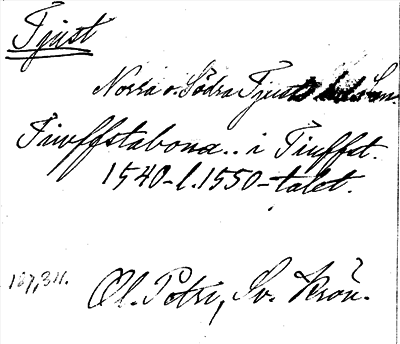 Tjust
Norra o. Södra Tjusts
Tiuffstabona.. i Tiuffst.
1540- l. 1550-talet.
Ol. Petri, Sv. Krön.